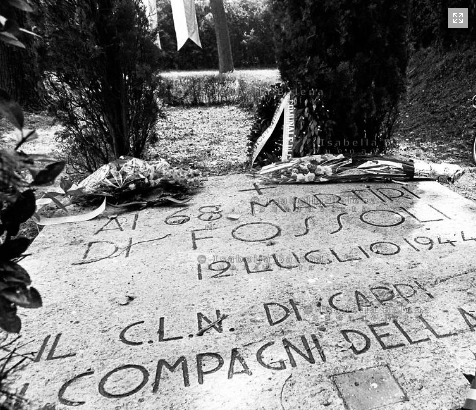 AI 68 MARTIRI
DI FOSSOLI
12 LUGLIO 1944
IL C.L.N. DI CARPI
COMPAGNI DELLA